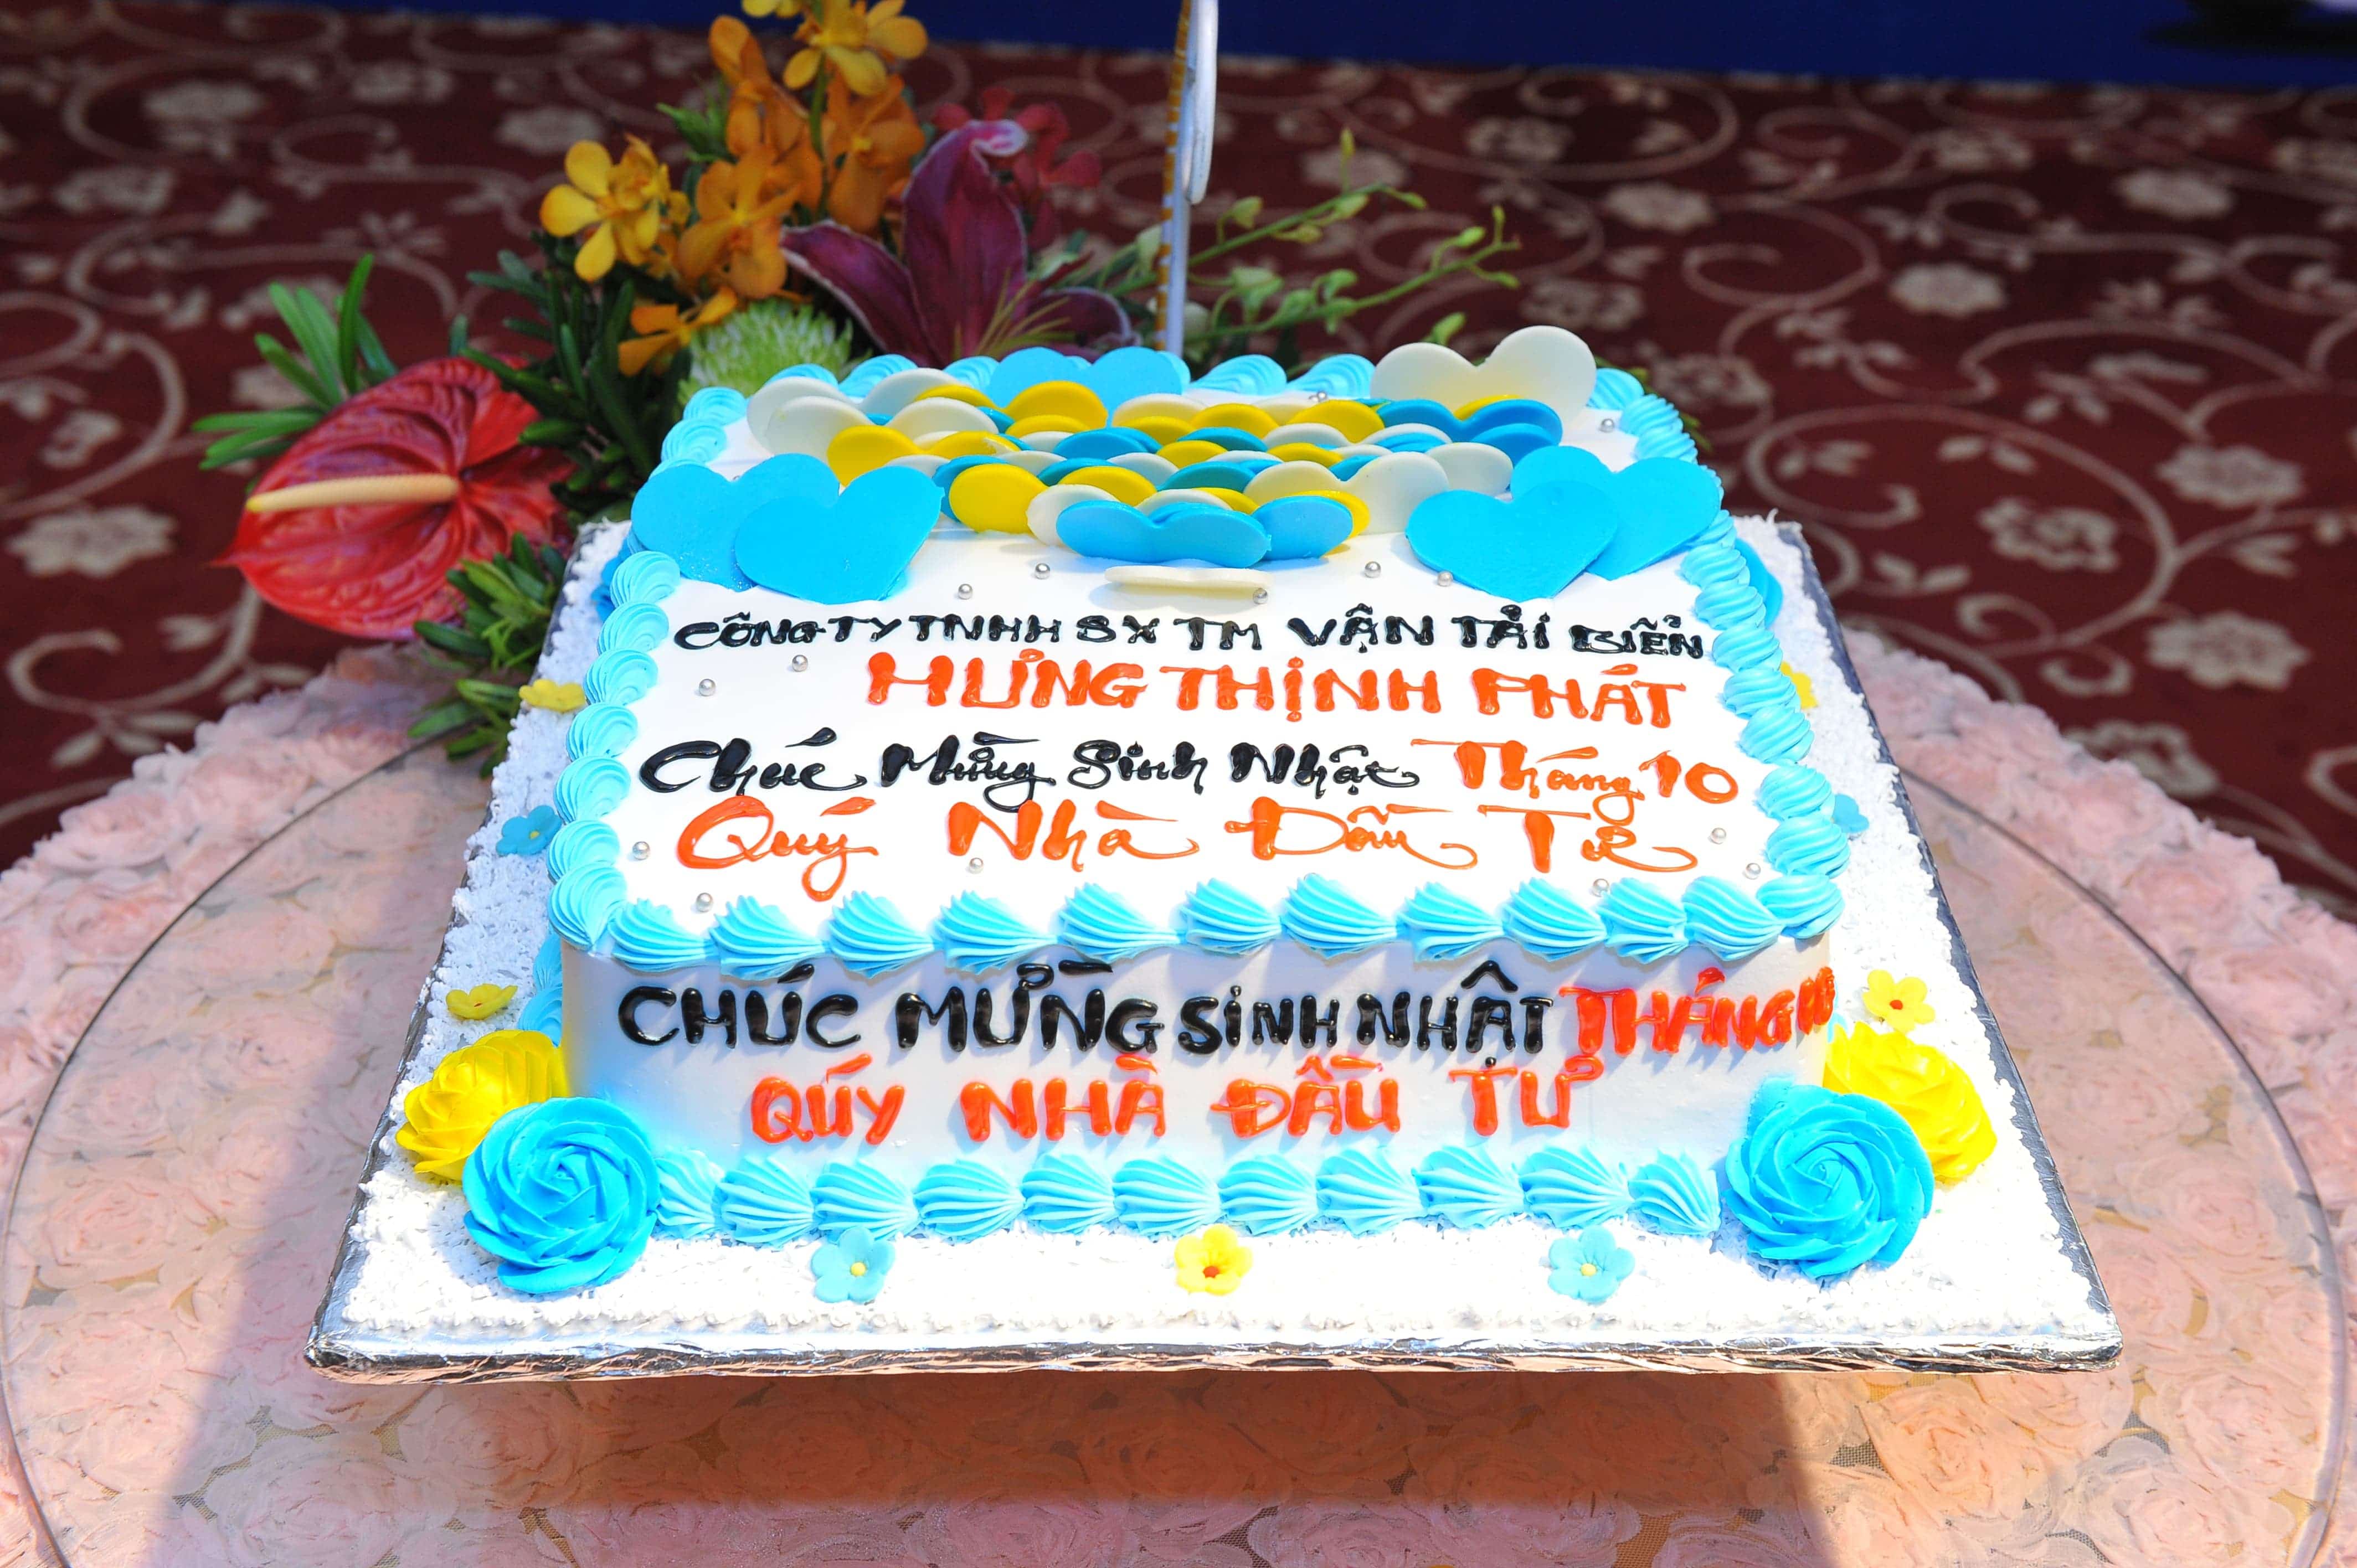 CÔNG TY TNHH SX TM VẬN TẢI BIỂN
HƯNG THỊNH PHÁT
Chúc Mừng Sinh Nhật Tháng 10
Quý Nhà Đầu Tư
CHÚC MỪNG SINH NHẬT THÁNG 10
QÚY NHÀ ĐẦU TƯ